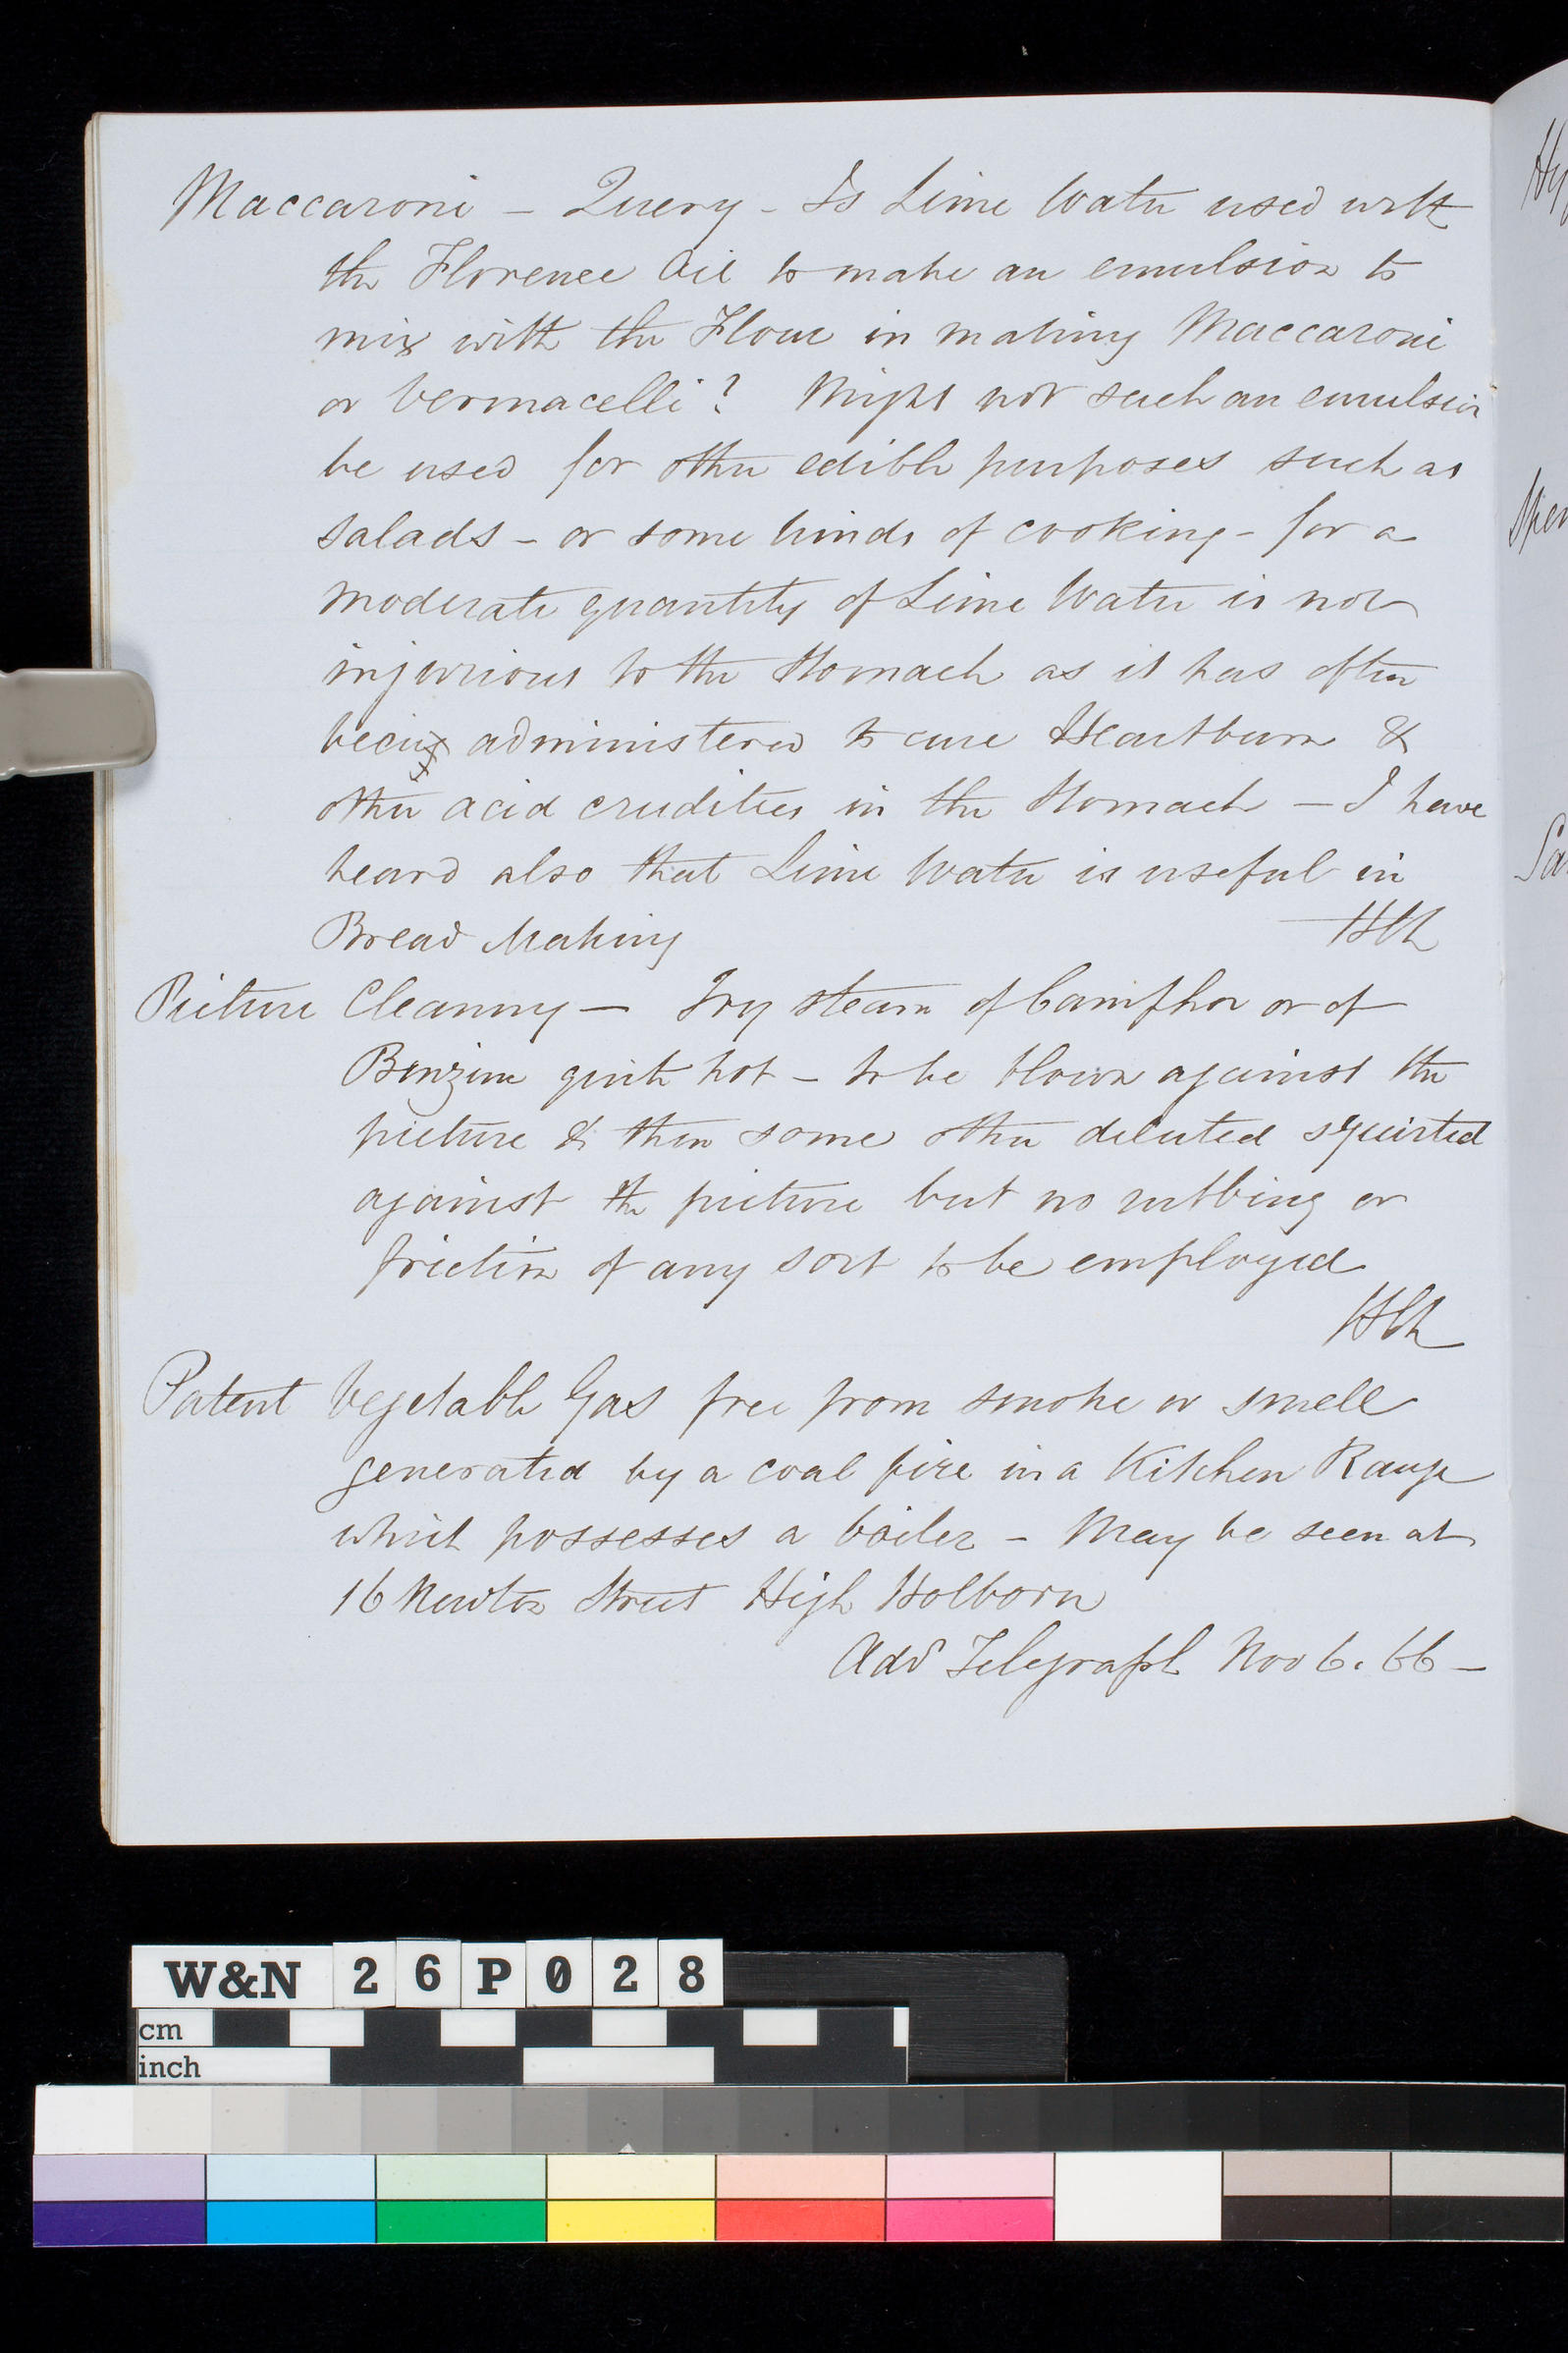 Maccaroni - Query - Is Lime Water used with
the Florence Oil to make an emulsion to
mix with the Flour in making Maccaroni
or Vermacelli? Might not such an emulsion
be used for other edible purposes such as
salads - or some kinds of cooking - for a
moderate quantity of Lime Water is not
injurious to the Stomach as it has often
been administered to cure Heartburn &
other acid crudities in the Stomach - I have
heard also that Lime Water is useful in
Bread Making
Picture Cleaning - Try steam of Camphor or of
Benzine quite hot - to be blown against the
picture & then some other diluted squirted
against the picture but no rubbing or
friction of any sort to be employed
Patent Vegetable Gas free from smoke or smell
generated by a coal fire in a Kitchen Range
which possesses a boiler - May be seen at
16 Newton Street High Holborn
Adv Telegraph Nov 6. 66 -
W&N 26P028
cm
inch